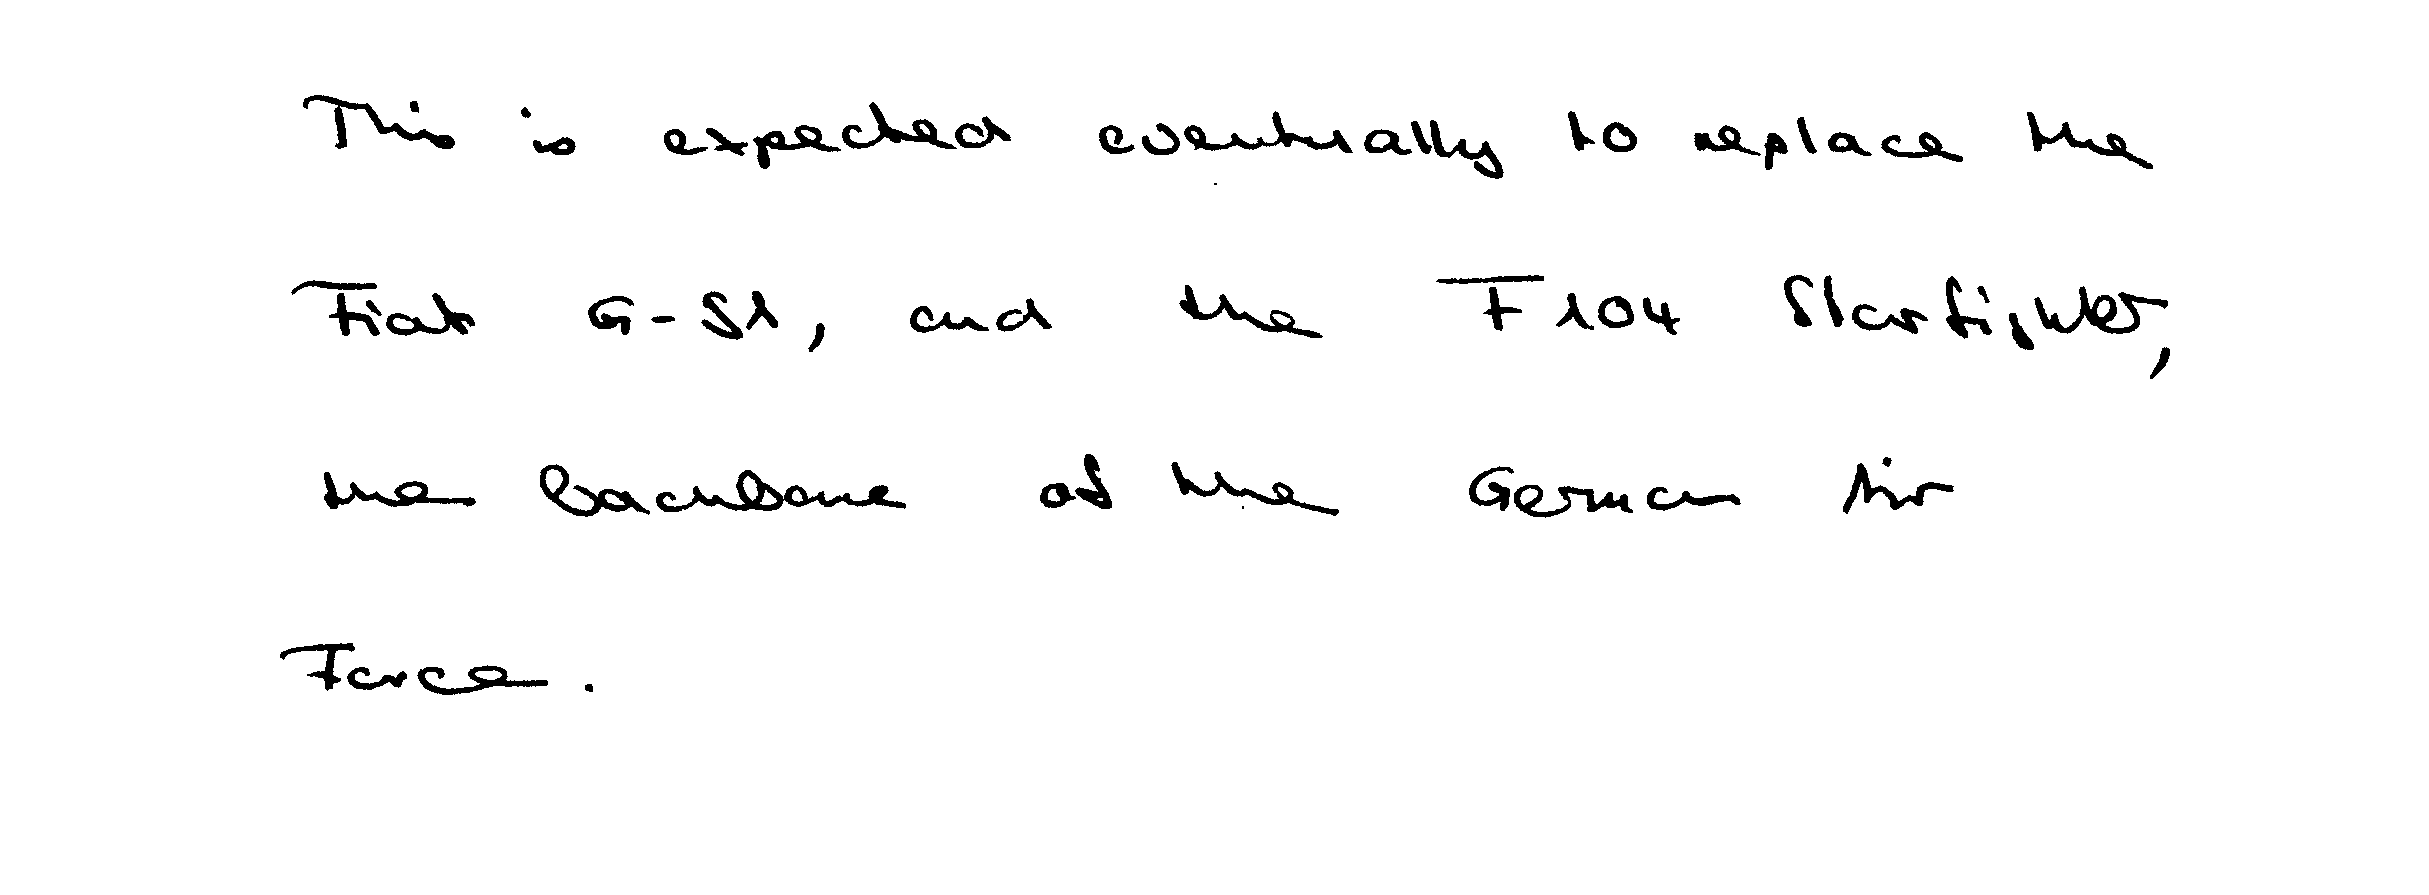 This is expected eventually to replace the
Fiat G-91, and the F104 Starfighter,
the backbone of the German Air
Force.